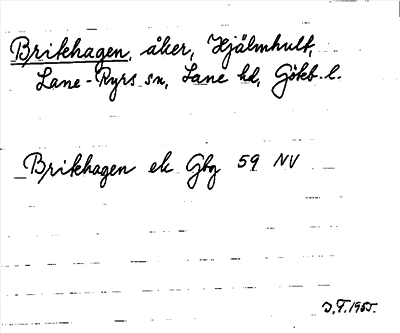 Brikhagen, åker, Hjälmhult,
Lane-Ryrs sn, Lane hd, Göteb. l.
Brikhagen ek Gbg 59 NV
J.F. 1955.